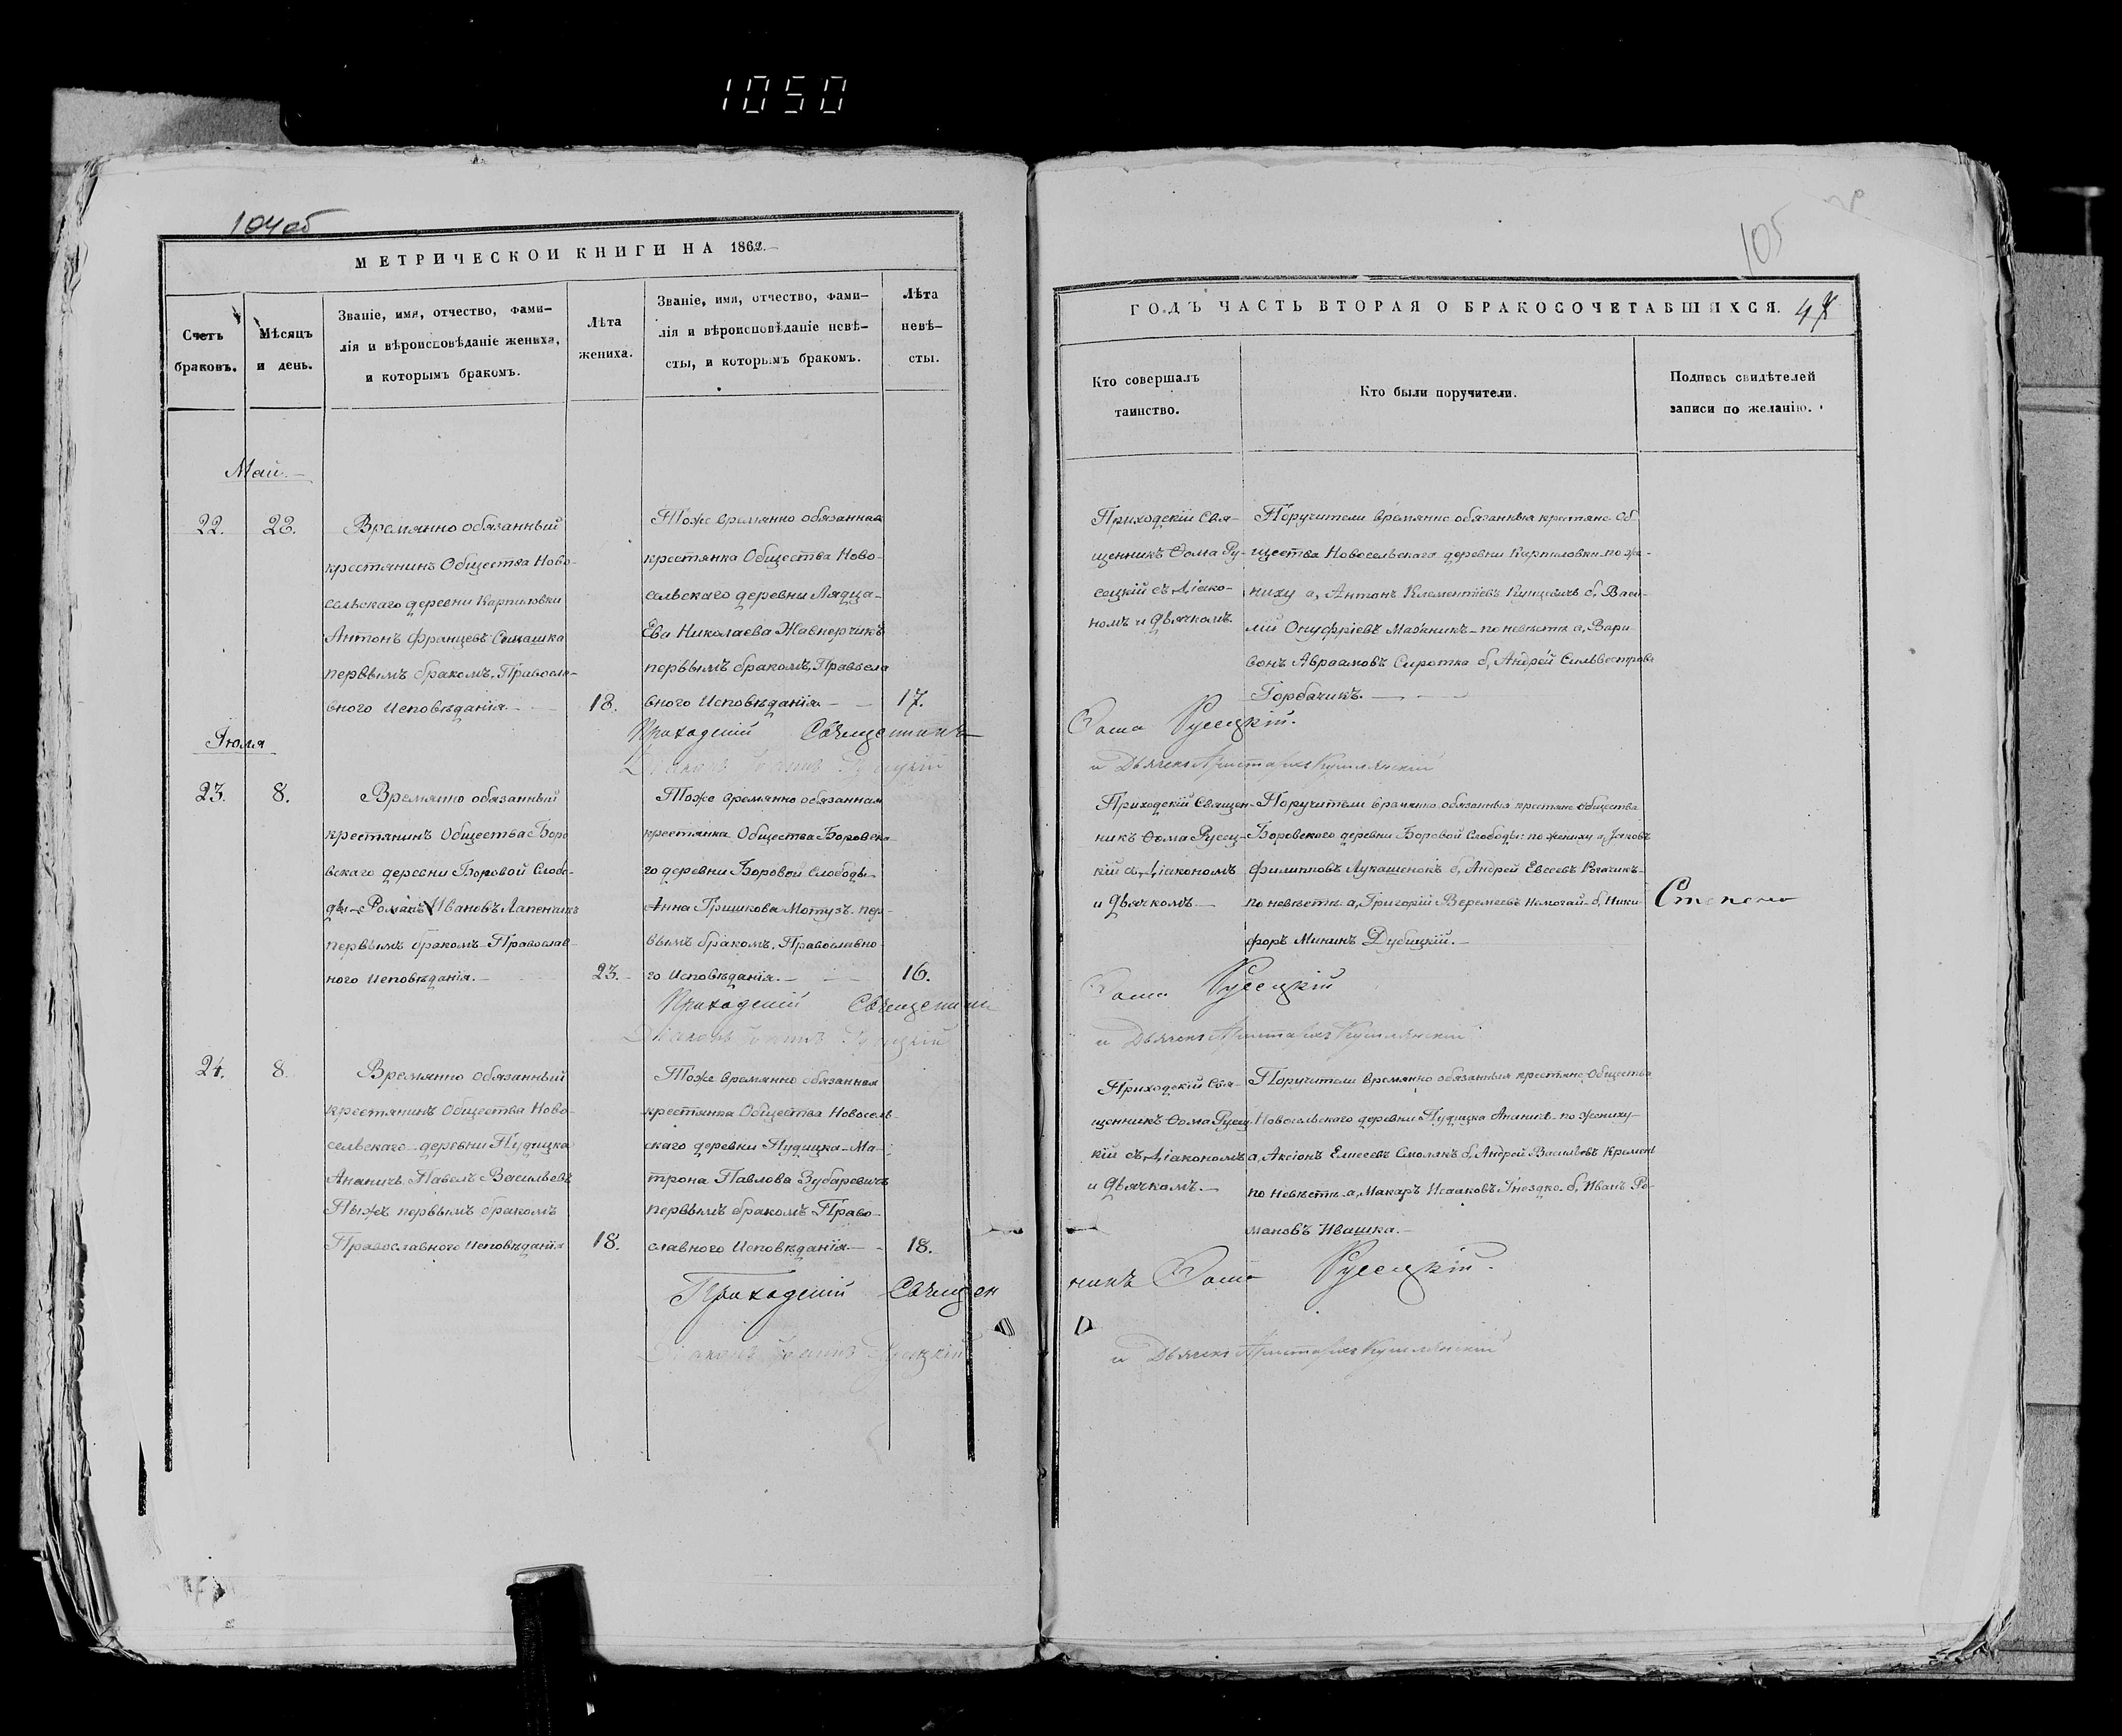 1050
104об
МЕТРИЧЕСКОЙ КНИГИ НА 1862.
Счетъ браковъ.
Мѣсяцъ и день.
Званіе, имя, отчество, фами-
лія и вѣроисповѣданіе жениха,
и которымъ бракомъ.
Лѣта
жениха.
Званіе, имя, отчество, фами-
лія и вѣроисповѣданіе невѣ-
сты, и которымъ бракомъ.
Лѣта
невѣ-
сты.
Май.
22.
23.
Времянно обязанный
крестянинъ Общества Ново-
сельскаго деревни Карпиловки
Антонъ Францевъ Симашка
первымъ бракомъ, Правосла-
вного Исповѣданія.
18.
Тоже времянно обязанная
крестянка Общества Ново-
сельскаго деревни Лядца-
Ева Николаева Жавнерчикъ
первымъ бракомъ, Правосла
вного Исповѣданія
17.
Приходскій Священникъ
Діаконъ Іоаннъ Русецкій
Іюля
23.
8.
Времянно обязанный
крестянинъ Общества Боро
вскаго деревни Боровой Слобо-
ды Романъ Ивановъ Лапенчикъ
первымъ бракомъ Православ-
ного Исповѣданія.
23.
Тоже времянно обязанная
крестянка Общества Боровска-
го деревни Боровой Слободы
Анна Гришкова Мотузъ пер-
вымъ бракомъ, Православно-
го Исповѣданія.
16.
Приходскій Священникъ
Діаконъ Іоаннъ Русецкій
24.
8.
Времянно обязанный
крестянинъ Общества Ново-
сельскаго деревни Пудицка
Ананичъ Павелъ Васильевъ
Пыжъ первымъ бракомъ
Православного Исповѣданія
18.
Тоже времянно обязанная
крестянка Общества Новосель-
скаго деревни Пудицка Ма-
трона Павлова Зубаревичъ
первымъ бракомъ Право-
славного Исповѣданія
18.
Приходскій Священ
Діаконъ Іоаннъ Русецкій
105
ГОДЪ ЧАСТЬ ВТОРАЯ О БРАКОСОЧЕТАВШИХСЯ.
Кто совершалъ
таинство.
Кто были поручители.
Подпись свидѣтелей
записи по желанію.
Приходскій Свя-
щенникъ Ѳома Ру-
сецкій съ Діако-
номъ и Дьячкомъ
Поручители времянно обязанныя крестяне Об
щества Новосельскаго деревни Карпиловки по же-
ниху а, Антонъ Клементіевъ Кунцевичъ б, Васи-
лій Онуфріевъ Мазаникъ по невѣстѣ а, Вари-
вонъ Авраамовъ Сиротка б, Андрей Сильвестровъ
Горбачикъ.
Ѳома Русецкій.
и Дьячекъ Аристархъ Кушлянскій
Приходскій Священ-
никъ Ѳома Русец-
кій съ Діакономъ
и Дьячкомъ
Поручители времянно обязанныя крестяне Общества
Боровскаго деревни Боровой Слободы: по жениху а, Яковъ
Филипповъ Лукашенокъ б, Андрей Евсеевъ Рогачикъ
по невѣстѣ а, Григорій Веремеевъ Немогай б, Ники-
форъ Мининъ Дубицкій.
Ѳома Русецкій
и Дьячекъ Аристархъ Кушлянскій
Приходскій Свя-
щенникъ Ѳома Русец
кій съ Діакономъ
и Дьячкомъ
Поручители времянно обязанныя крестяне Общества
Новосельскаго деревни Пудицка Ананичъ по жениху
а, Аксіонъ Елисеевъ Смолякъ б, Андрей Васильевъ Кремень
по невѣстѣ а, Макаръ Исааковъ Гнездко б, Иванъ Ро-
мановъ Ивашка.
никъ Ѳома Русецкій.
и Дьячекъ Аристархъ Кушлянскій